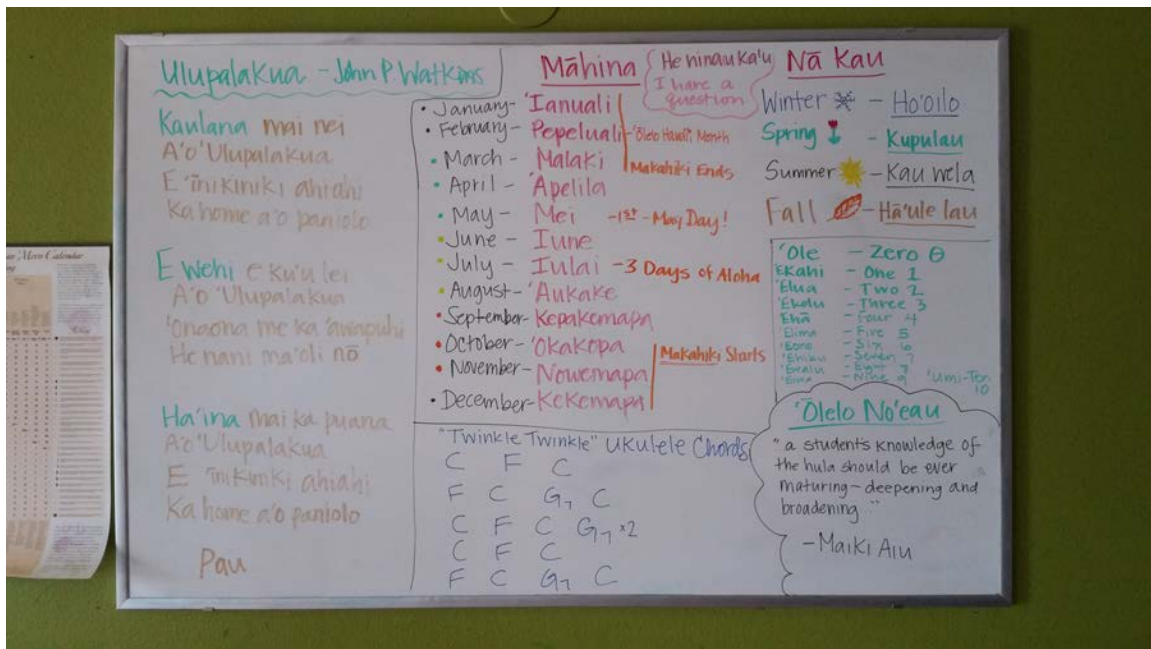 Ulupalakua - John P. Watkins
Kaulana mai nei
A'o 'Ulupalakua
E 'inikiniki ahiahi
Ka home a'o paniolo
E wehi e ku'u lei
A'o 'Ulupalakua
'Onaona me ka 'awapuhi
He nani ma'oli nō
Ha'ina mai ka puana
A'o 'Ulupalakua
E 'inikiniki ahiahi
Ka home a'o paniolo
Pau
Māhina
He ninau ka'u
I have a
question
• January - 'Ianuali
• February - Pepeluali - 'Ōlelo Hawai'i Month
• March - Malaki
Makahiki Ends
• April - 'Apelila
• May - Mei - 1st - May Day!
• June - Iune
• July - Iulai - 3 Days of Aloha
• August - 'Aukake
• September - Kepakemapa
• October - 'Okakopa
Makahiki Starts
• November - Nowemapa
• December - KeKemapa
"Twinkle Twinkle" Ukulele Chords
C F C
F C G7 C
C F C G7 x2
C F C
F C G7 C
Nā Kau
Winter - Ho'oilo
Spring - Kupulau
Summer - Kau wela
Fall - Hā'ule lau
'Ole - Zero 0
'Ekahi - One 1
'Elua - Two 2
'Ekolu - Three 3
'Ehā - Four 4
'Elima - Five 5
'Eono - Six 6
'Ehiku - Seven 7
'Ewalu - Eight 8
'Eiwa - Nine 9
'Umi - Ten
10
'Ōlelo No'eau
"a student's knowledge of
the hula should be ever
maturing - deepening and
broadening"
- Maiki Aiu
Moon Calendar